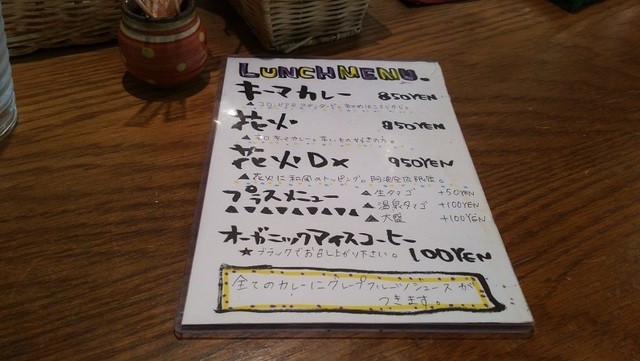 LUNCH MENU.
キーマカレー 850YEN
花火 850YEN
花火DX 950YEN
プラスメニュー
▲生タマゴ +50YEN
▲温泉タマゴ +100YEN
▲大盛 +100YEN
オーガニックアイスコーヒー 100YEN
★ブラックでお召し上がり下さい。
全てのカレーにグレープフルーツジュースが
つきます。